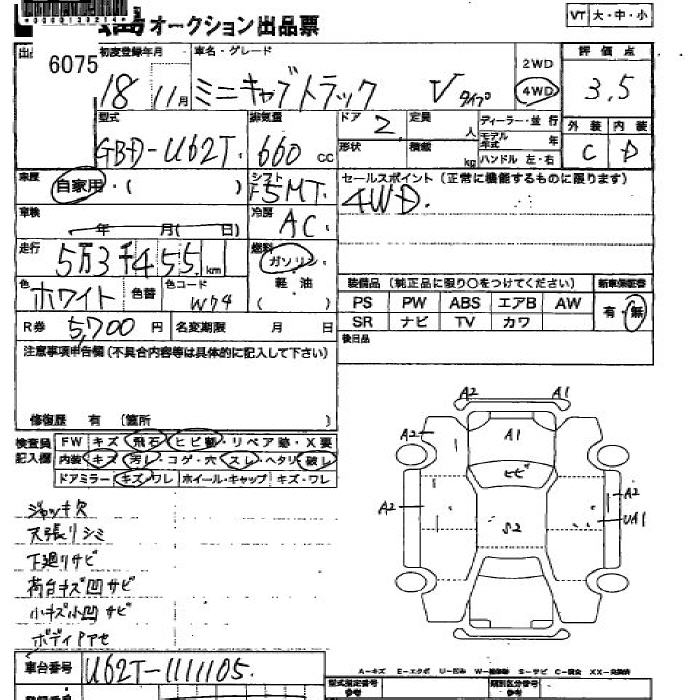 オークション出品票
VT 大・中・小
6075
初度登録年月 車名・グレード 2WD 評価点
18 11月 ミニキャブトラック Vタイプ 4WD 3.5
型式 排気量 ドア 2 定員 人 ディーラー・並行 外装 内装
GBD-U62T. 660cc 形状 積載 kg モデル年式 年 C D
ハンドル 左・右
車歴 自家用・( ) シフト F5MT. セールスポイント(正常に機能するものに限ります)
4WD.
車検 年 月(日) 冷房 AC.
走行 5万3千455km 燃料 ガソリン
軽・油
( )
色 ホワイト 色替 色コード W74
装備品(純正品に限り○をつけてください) 新車保証書
PS PW ABS エアB AW 有・無
SR ナビ TV カワ
R券 5,700円 名変期限 月 日 後日品
注意事項申告欄(不具合内容等は具体的に記入して下さい)
修復歴 有(箇所 )
検査員記入欄
FW キズ・飛石・ヒビ・リペア跡・X要
内装・キズ・汚レ・コゲ・穴・スレ・ヘタリ・破レ
ドアミラー・キズ・ワレ ホイール・キャップ キズ・ワレ
A2 A1
A2 A1
ヒビ
A2 A2
UA1
S2
ジャッキ欠
天張リシミ
下廻リサビ
荷台キズ凹サビ
小キズ小凹サビ
ボディアセ
車台番号 U62T-1111105.
A-キズ E-エクボ U-凹み S-サビ XX-交換済
型式指定番号 類別区分番号
参考 参考
登録番号